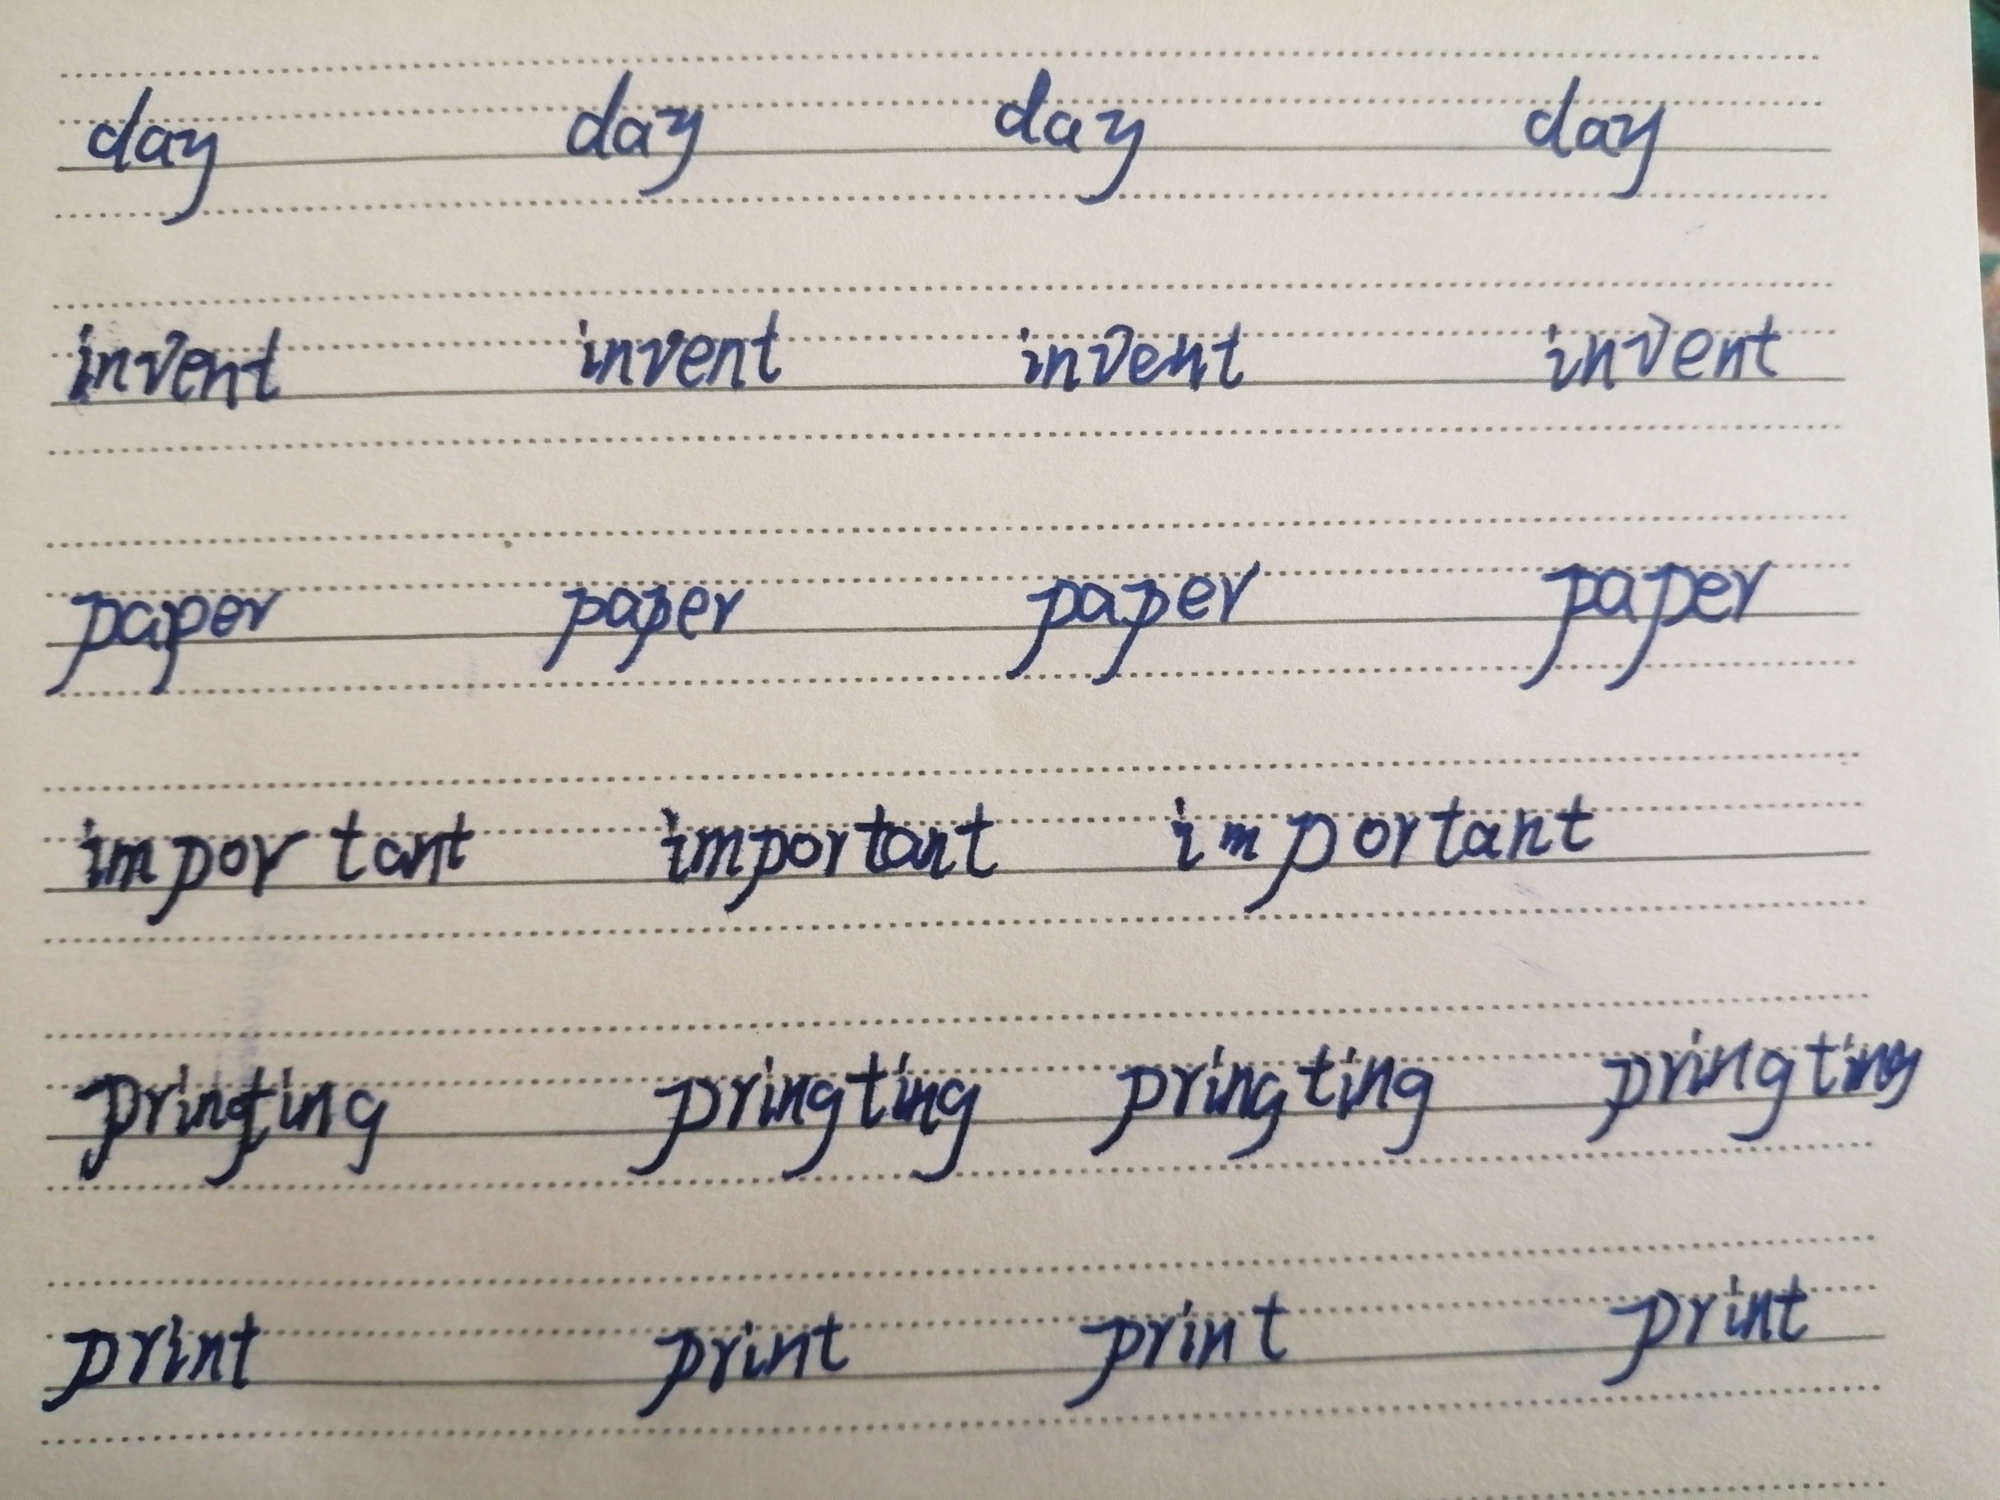 day day day day
invent invent invent invent
paper paper paper paper
important important important
pringting pringting pringting pringting
print print print print